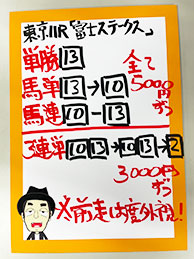 東京11R「富士ステークス」
単勝13
馬単13→10
馬連10-13
全て
5000円
ずつ
3連単10 13→10 13→2
3000円
ずつ
※前走は度外視!